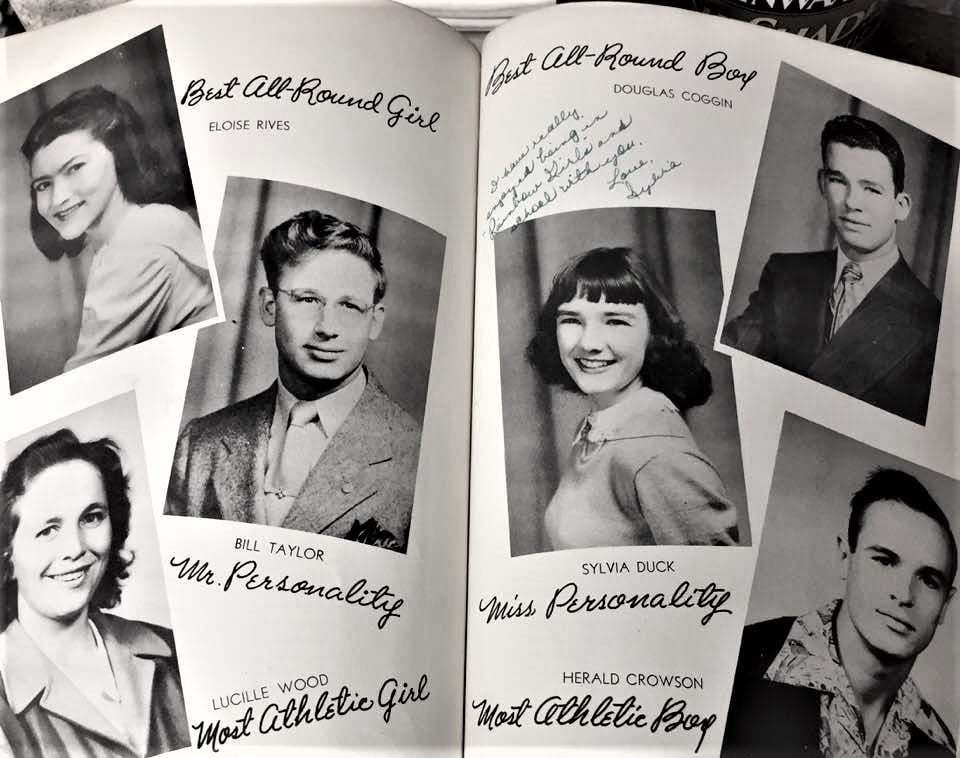 Best All-Round Girl
ELOISE RIVES
BILL TAYLOR
Mr. Personality
LUCILLE WOOD
Most Athletic Girl
Best All-Round Boy
DOUGLAS COGGIN
I have really
enjoyed being in
Rainbow Girls and
school with you.
Love,
Sylvia
SYLVIA DUCK
Miss Personality
HERALD CROWSON
Most Athletic Boy